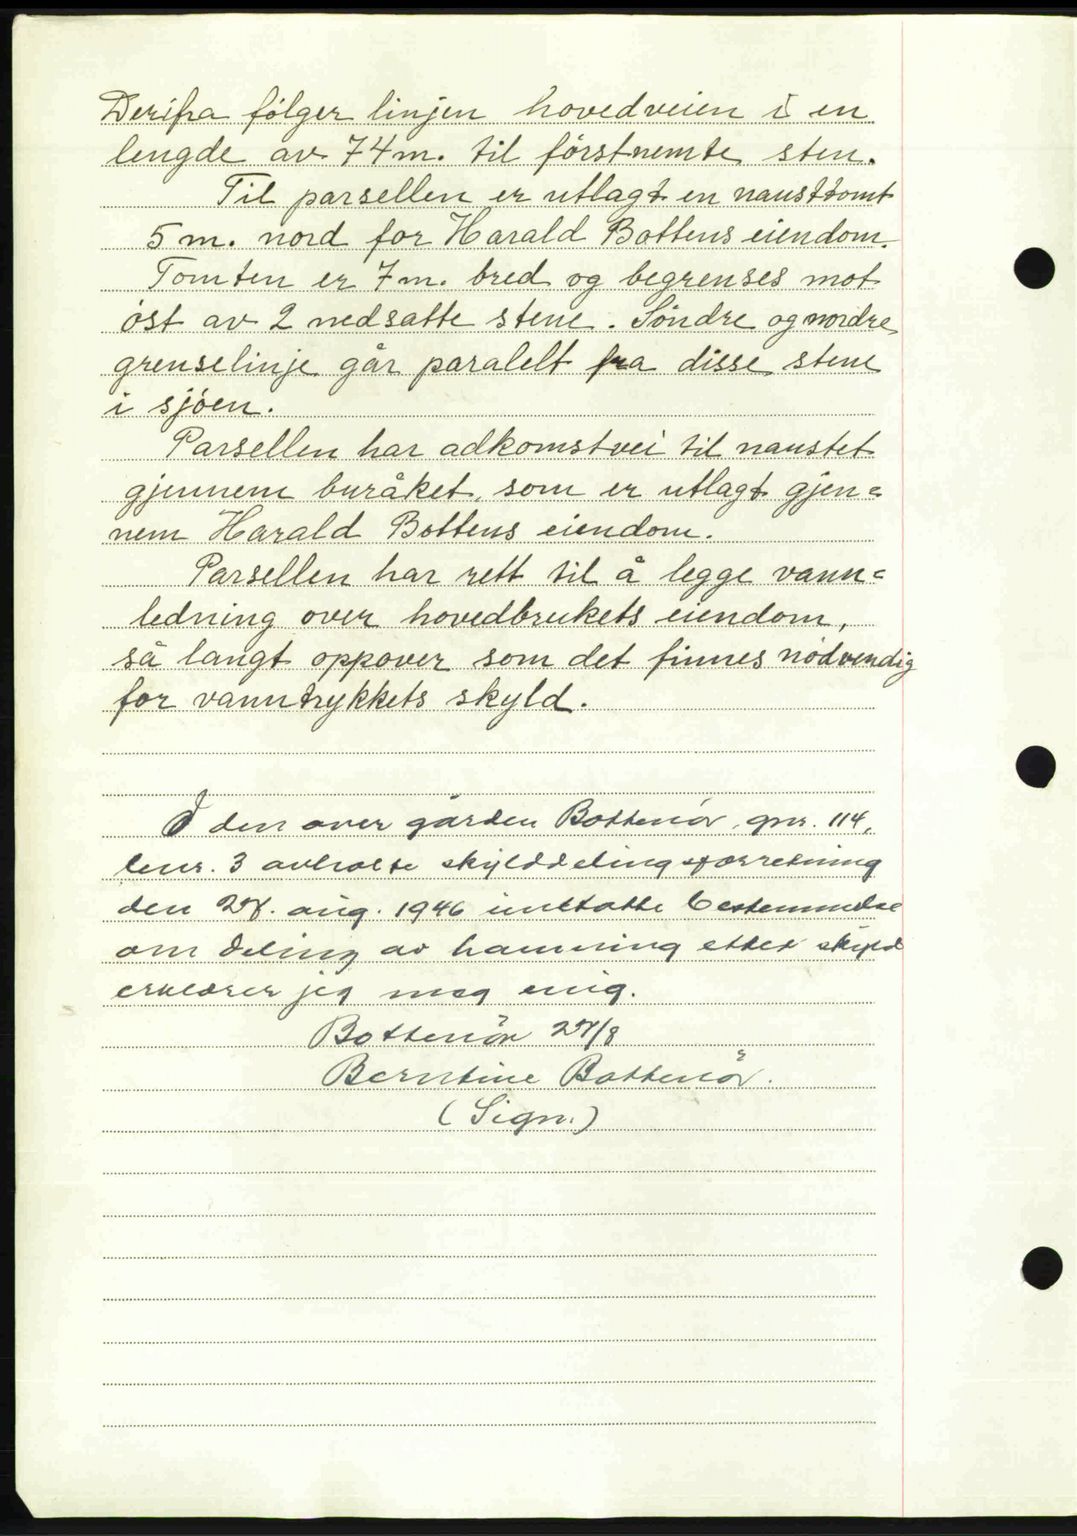 Derifra følger linjen hovedveien i en
lengde av 74 m. til förstnemte sten.
Til parsellen er utlagt en nausttomt
5 m. nord for Harald Bottens eiendom.
Tomten er 7 m. bred og begrenses mot
öst av 2 nedsatte stene. Söndre og nordre
grenselinje går paralelt fra disse stene
i sjöen.
Parsellen har adkomstvei til naustet
gjennem buråket, som er utlagt gjen=
nem Harald Bottens eiendom.
Parsellen har rett til å legge vann=
ledning over hovedbrukets eiendom,
så langt oppover som det finnes nödvendig
for vanntrykkets skyld.
I den over gården Bottenör, gnr. 114,
bnr. 3 avholdte skylddelingsforretning
den 27. aug. 1946 inntatte bestemmelse
om deling av havning etter skyld
erklærer jeg meg enig.
Bottenör 27/8
Berntine Bottenör.
(Sign.)